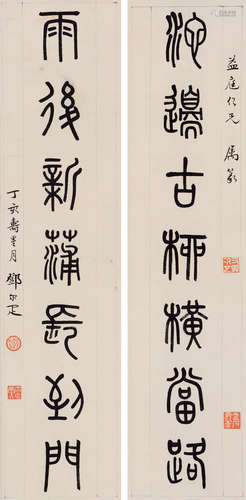 益庭仁兄 屬篆
池邊古柳橫當路
雨後新蒲長到門
丁亥壽星月 鄧尔疋